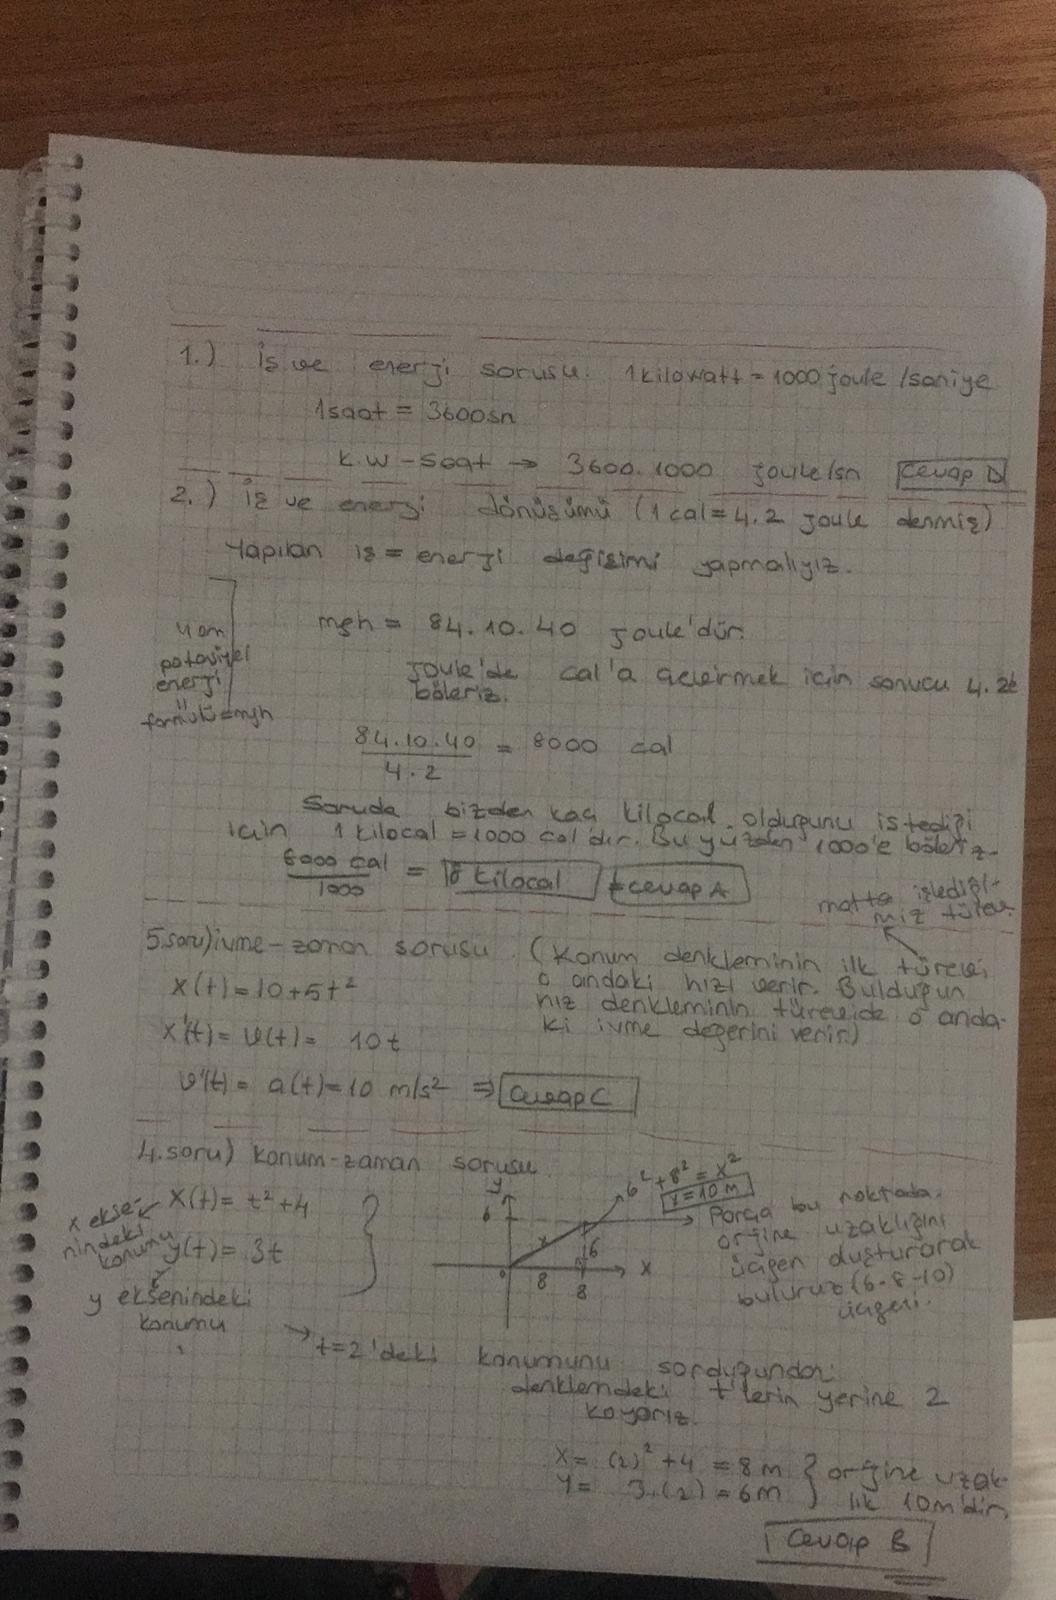 1.) İş ve enerji sorusu. 1 kilowatt = 1000 joule /saniye
1saat = 3600sn
K.W-Saat → 3600.1000 joule/sn Cevap D
2.) İş ve enerji dönüşümü (1 cal = 4.2 joule denmiş)
Yapılan iş = enerji değişimi yapmalıyız.
mgh = 84.10.40 joule'dür.
potansiyel
enerji
formülü=mgh
joule'de cal'a çevirmek için sonucu 4.2'e
böleriz.
84.10.40 / 4.2 = 8000 cal
Soruda bizden kaç kilocal olduğunu istediği
için 1 kilocal = 1000 cal dir. Bu yüzden 1000'e böleriz.
8000 cal / 1000 = 8 kilocal Cevap A
5.soru) ivme-zaman sorusu (Konum denkleminin ilk türevi
o andaki hızı verir. Bulduğun
hız denkleminin türevide o anda-
ki ivme değerini verir)
matta işlediği-
miz türev.
x(t) = 10+5t²
x'(t) = v(t) = 10t
v'(t) = a(t) = 10 m/s² ⇒ Cevap C
4.soru) konum-zaman sorusu
x ekse-
nindeki
konumu
x(t) = t²+4
y(t) = 3t
y eksenindeki
konumu
y
6
x
6
8
8
0
x
6²+8² = x²
x=10 m
Parça bu noktada.
orjine uzaklığını
üçgen oluşturarak
buluruz (6-8-10)
üçgeni.
→ t=2'deki konumunu sorduğundan
denklemdeki t'lerin yerine 2
koyarız.
x = (2)²+4 = 8m } orjine uzak-
y = 3.(2) = 6m } lık 10m'dir.
Cevap B